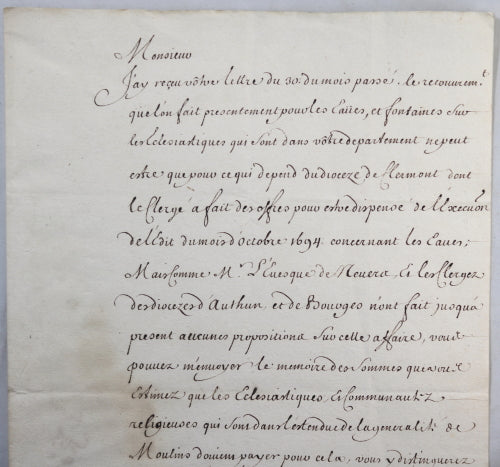 Monsieur
J'ay reçu vôtre lettre du 30. du mois passé. le recouvrem.t
que l'on fait presentement pour les Eaües, et fontaines sur
les Eclesiastiques qui sont dans vôtre departement ne peut
estre que pour ce qui depend du dioceze de Clermont dont
le Clergé a fait des offres pour estre dispensé de l'Execu͠on
de l'Edit du mois d'octobre 1694. concernant les Eaües;
Mais Comme M.r L'Euesque de Neuers, Et les Clergez
des diocezes d'Authun, et de Bourges n'ont fait jusqu'a
present aucunes propositions sur celle affaire, vous
pouuez m'enuoyer le memoire des sommes que vous
Estimez que les Eclesiastiques, Et Communautez
religieuses qui sont dans l'estendue de la generalité de
Moulins doiuent payer pour cela, vous y distinguerez